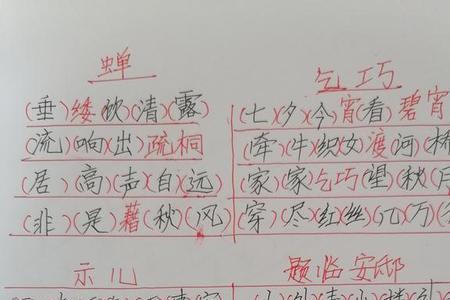 蝉
(垂)緌饮(清)(露)
(流)(响)(出)疏桐
(居)(高)(声)(自)(远)
(非)(是)藉(秋)(风)
乞巧
(七)(夕)(今)宵(看)碧霄
(牵)(牛)织女渡(河)(桥
(家)(家)乞巧(望)(秋)(月
(穿)(尽)(红)(丝)(几)(万)(
示儿
题临安邸